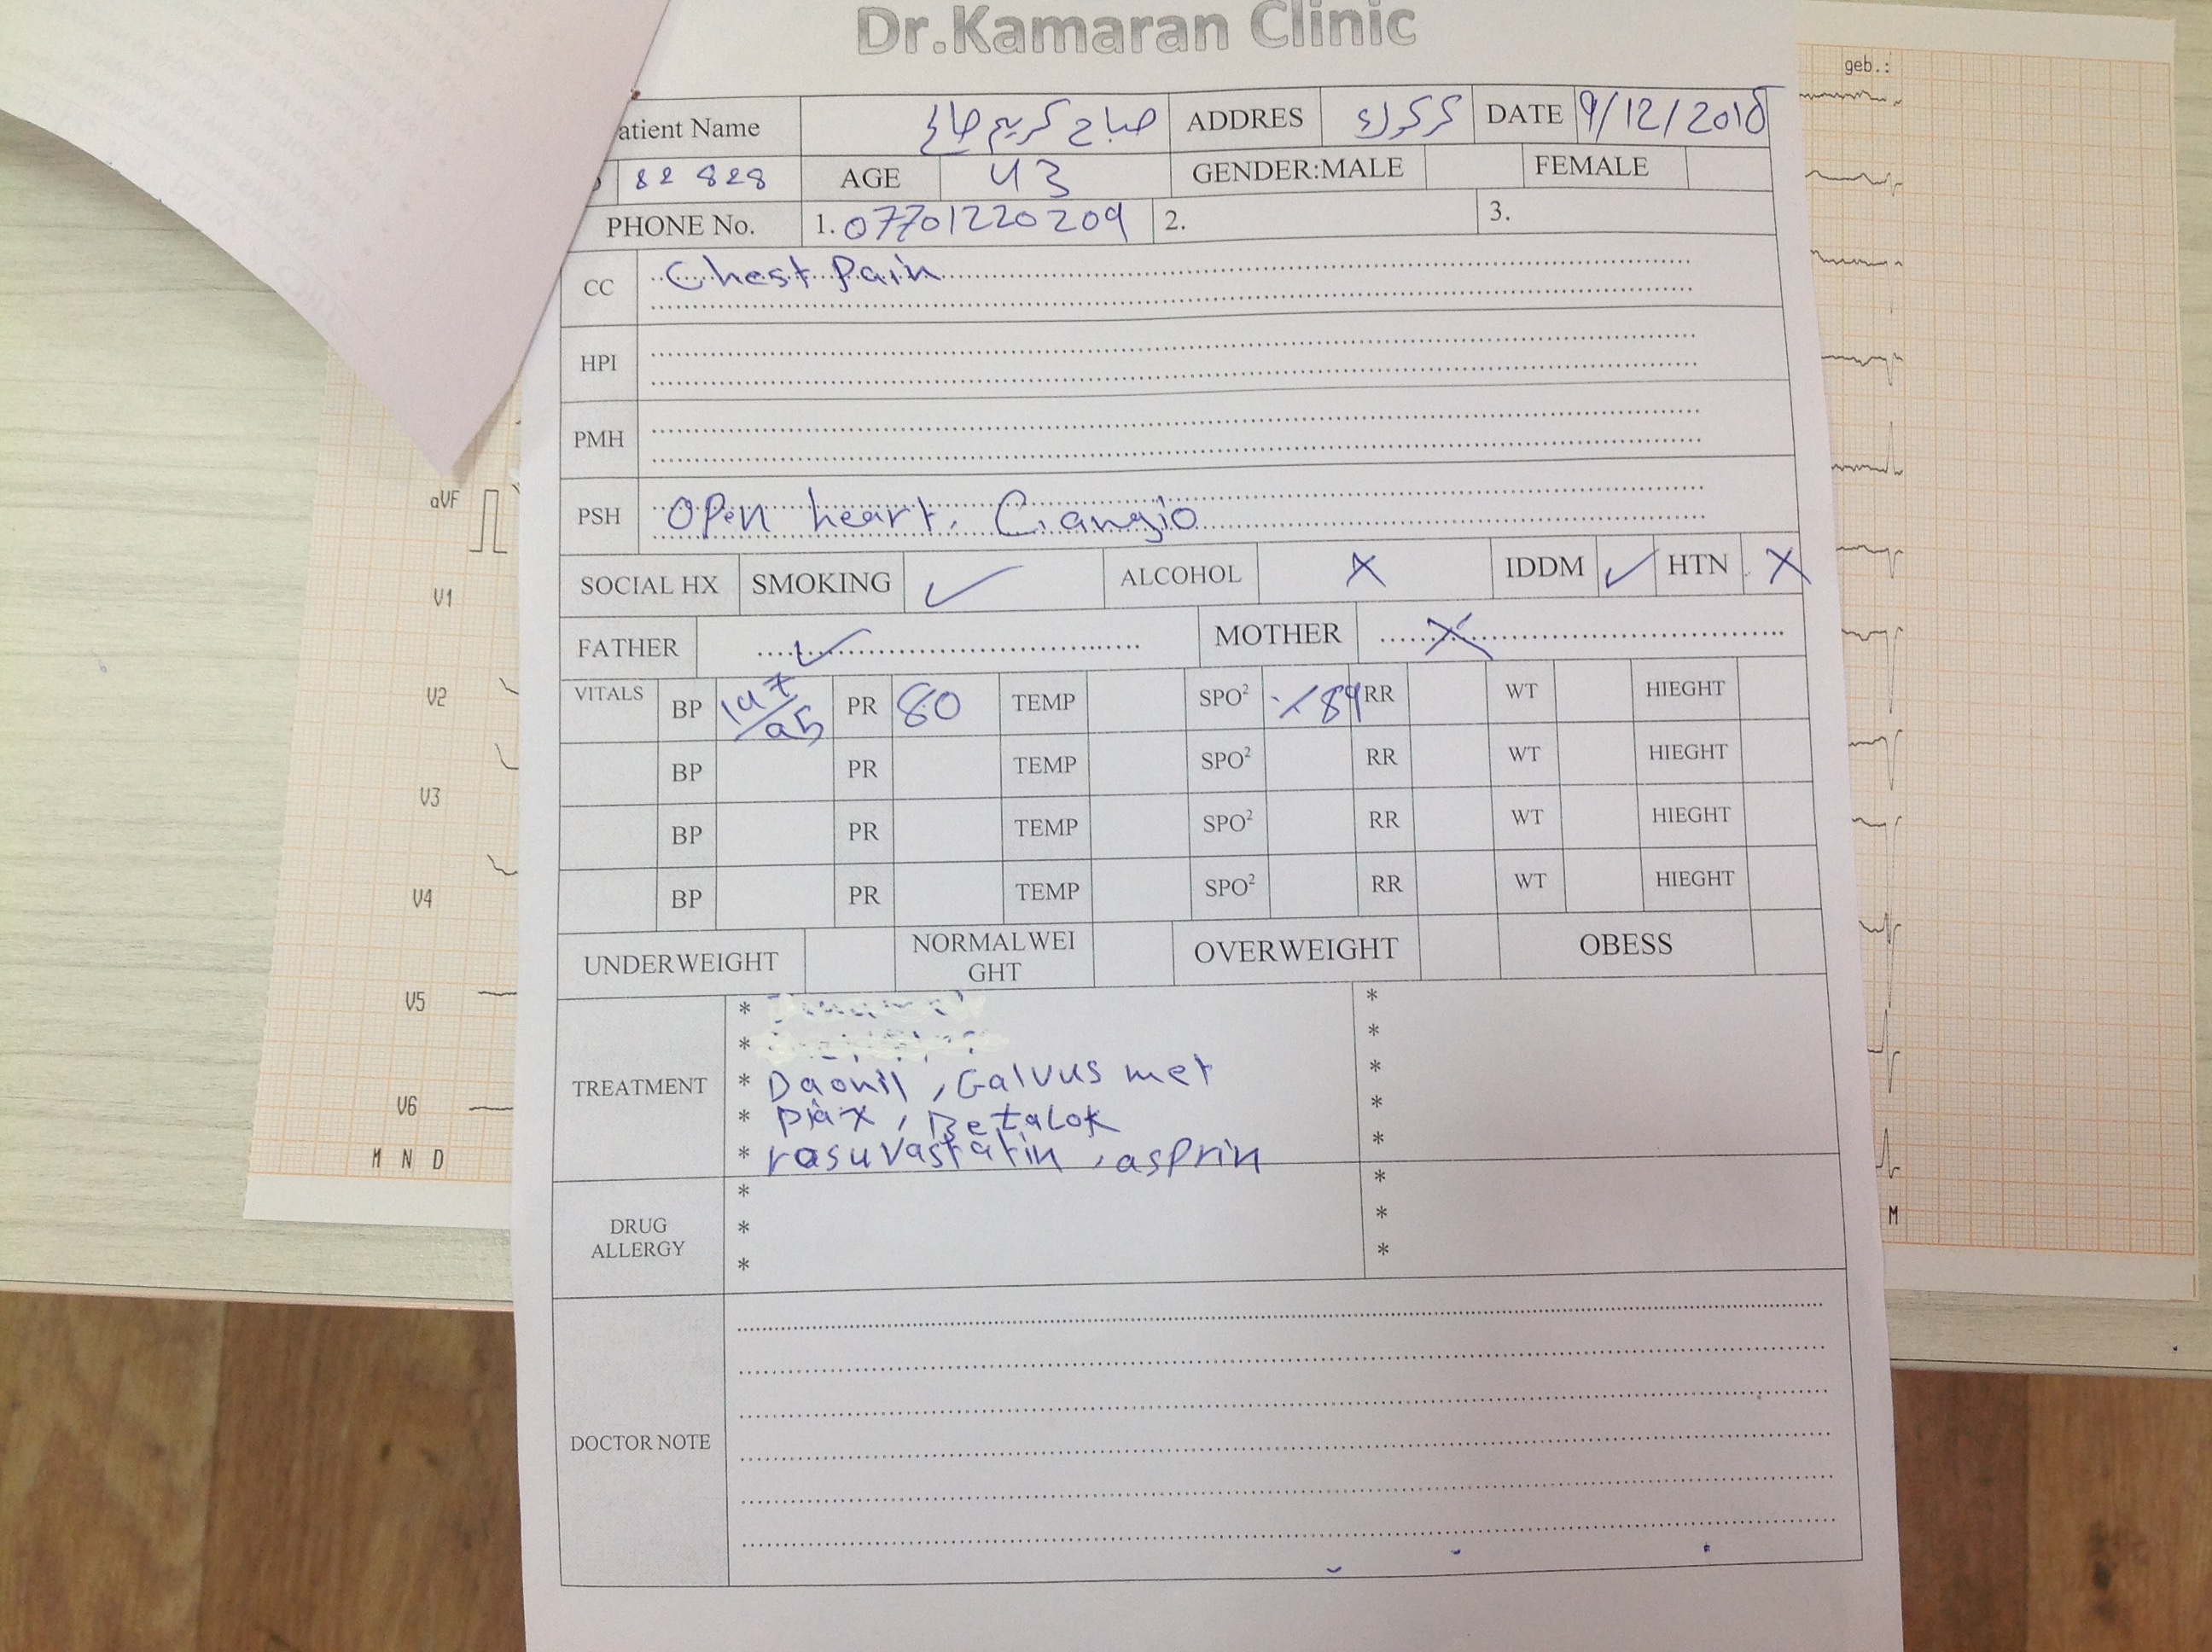 Dr.Kamaran Clinic
geb.:
atient Name صباح كريم صالح ADDRES كركوك DATE 9/12/2018
82828 AGE 43 GENDER:MALE FEMALE
PHONE No. 1. 07701220209 2. 3.
CC Chest Pain
HPI
PMH
PSH Open heart, C. angio
SOCIAL HX SMOKING ✓ ALCOHOL X IDDM ✓ HTN X
FATHER ✓ MOTHER X
VITALS BP PR 80 TEMP SPO² %89 RR WT HIEGHT
BP PR TEMP SPO² RR WT HIEGHT
BP PR TEMP SPO² RR WT HIEGHT
BP PR TEMP SPO² RR WT HIEGHT
UNDERWEIGHT NORMALWEI OVERWEIGHT OBESS
GHT
TREATMENT
*
*
* Daonil, Galvus met
* , Betalok
* rasuvastatin, asprin
*
*
*
*
*
DRUG
ALLERGY
*
*
*
*
*
*
DOCTOR NOTE
aVF
V1
V2
V3
V4
V5
V6
M N D
M